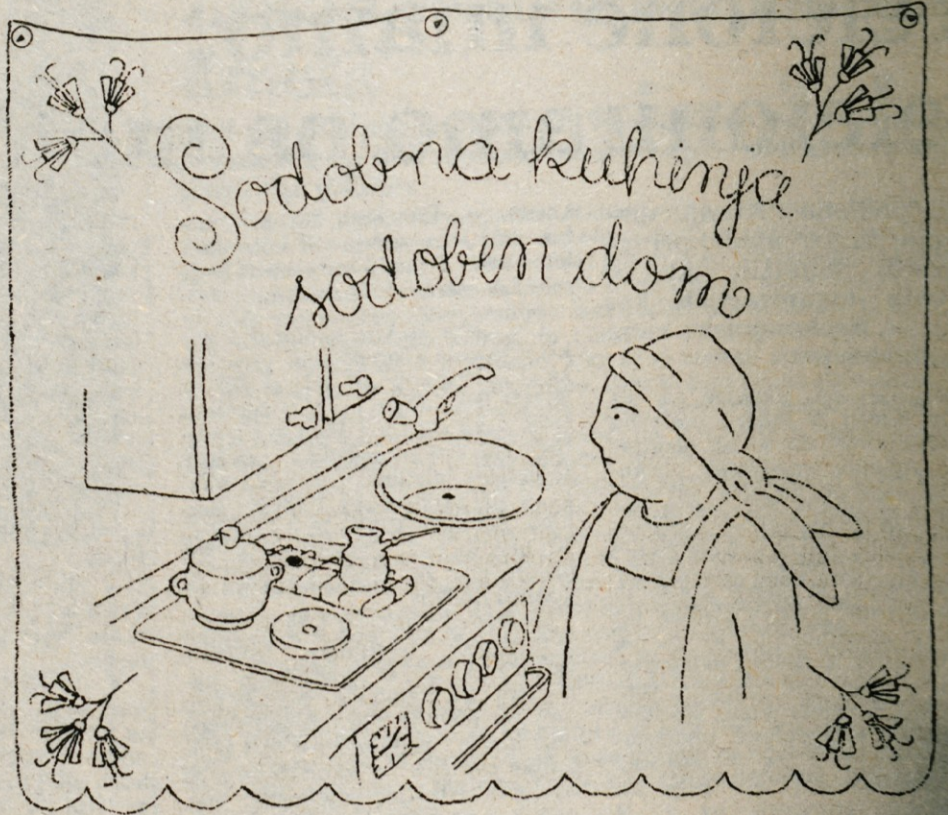 Sodobna kuhinja
sodoben dom